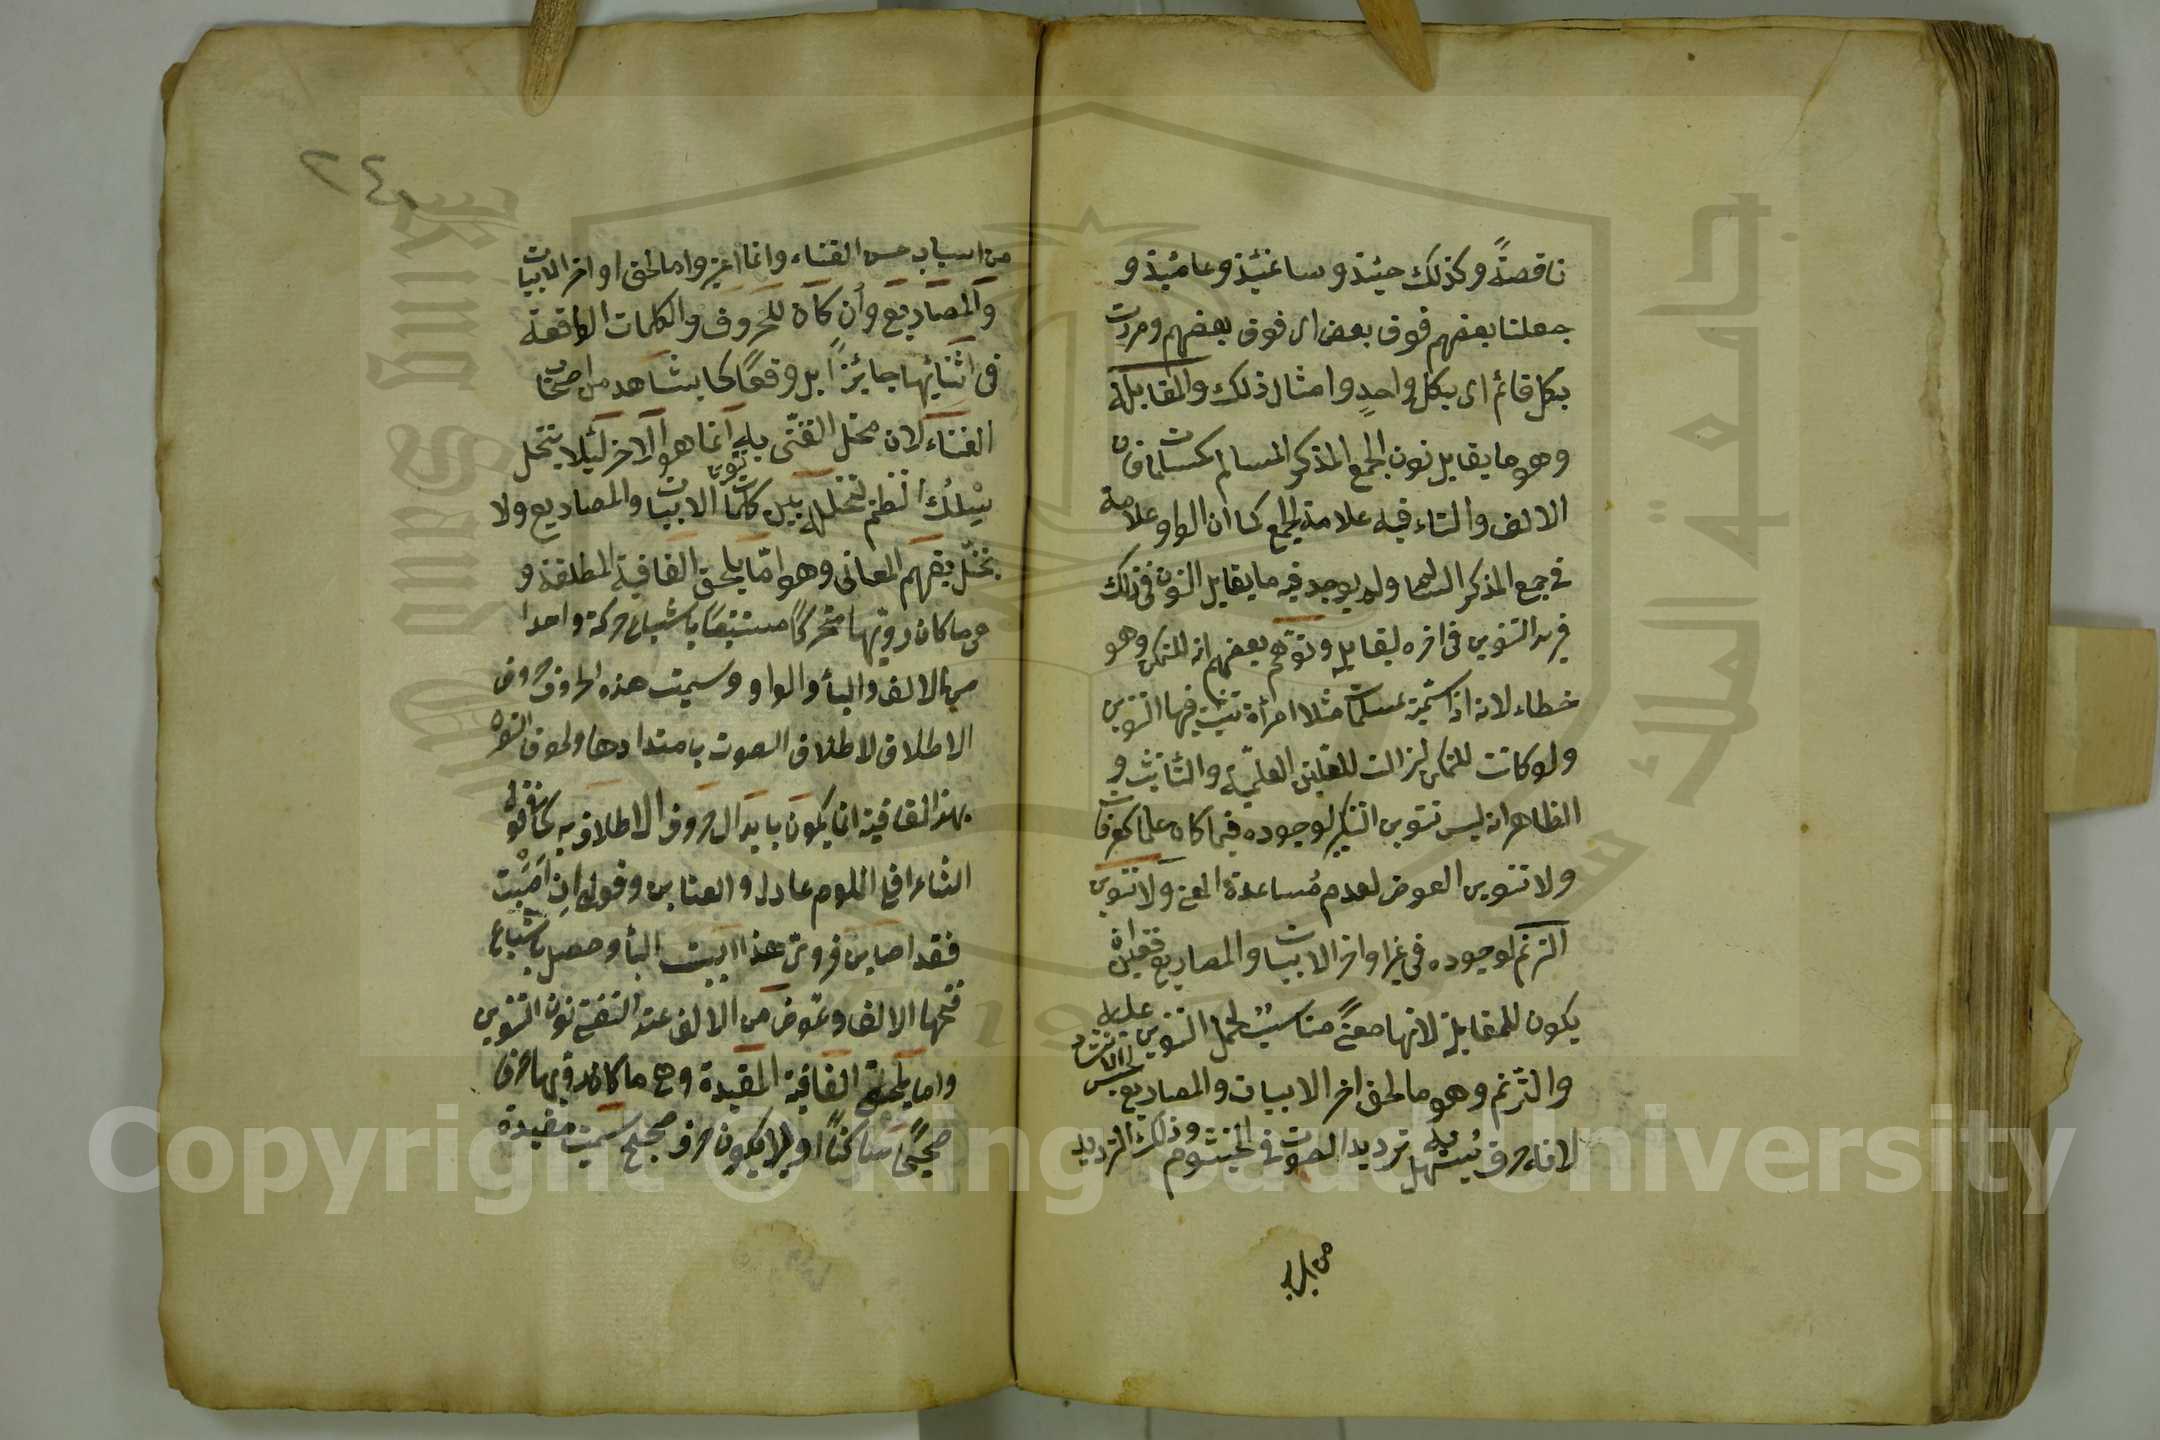 ناقصةً وكذلك حينئذ وساعتئذ وعامئذ و
جعلنا بعضهم فوق بعض اى فوق بعضهم ومررت
بكل قائم اى بكل واحدٍ وامثال ذلك والمقابلة
وهو ما يقابل نون الجمع المذكر السالم كمسلمات فان
الالف والتاء فيه علامة الجمع كما ان الواو علامة
فى جمع المذكر السالم ولم يوجد فيه ما يقابل النون فى ذلك
فزيد التنوين فى اخره ليقابله وتوهم بعضهم انه للتمكن وهو
خطاء لانه اذا سميت بمسلمات مثلا امرأة تثبت فيها التنوين
ولو كانت للتمكن لزالت للعلتين العلمية والتأنيث و
الظاهر انه ليس تنوين التنكير لوجوده فيما كان علما كعرفات
ولا تنوين العوض لعدم مساعدة المعنى ولا تنوين
الترنم لوجوده فى غير اواخر الابيات والمصاريع فتعين ان
يكون للمقابلة لانها معنىً مناسب لحمل التنوين عليه
والترنم وهو ما لحق اخر الابيات والمصاريع لتحسين الانشاد
لانه حرف يسهل به ترديد الصوت فى الخيشوم وذلك الترديد
من اسباب
من اسباب حسن الغناء وانما اعتبروا ما لحق اواخر الابيات
والمصاريع وان كان للحروف والكلمات الواقعة
فى اثنائها جائزاً بل وقوعًا كما يشاهد من اصحاب
الغناء لان محل التغنى به انما هو الآخر لئلا يتخلل
سلك النظم لتخلله بين كلمات الابيات والمصاريع ولا
يختل بفهم المعانى وهو امّا يلحق القافية المطلقة و
هى ما كان رويها متحركًا مستتبعًا باشباع حركة واحدا
من الالف والياء والواو وسميت هذه الحروف حروف
الاطلاق لاطلاق الصوت بامتدادها ولحوق التنوين
بهذا القافية انما يكون بابدال حروف الاطلاق به كما فى قول
الشاعر اقلى اللوم عاذل والعتابن وقولى ان اصبت
فقد اصابن فروى هذا البيت الباء وحصل باشباع
فتحها الالف وعوض من الالف عند التغنى نون التنوين
واما يلحق القافية المقيدة وهى ما كان رويها حرفا
صحيحًا ساكنًا او لا يكون حرف صحيح سميت مقيدة
٢٤
Copyright © King Saud University
King Saud University
جامعة الملك سعود